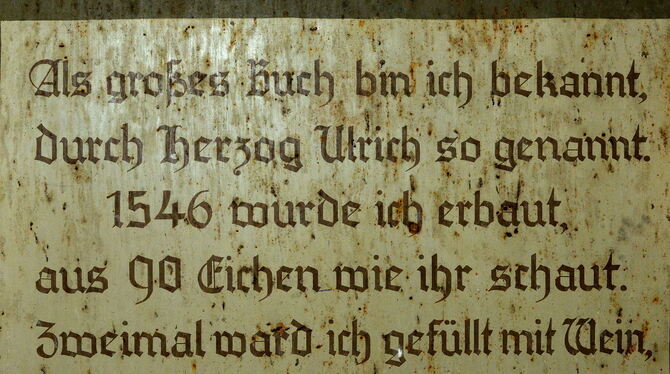 Als großes Buch bin ich bekannt,
durch Herzog Ulrich so genannt.
1546 wurde ich erbaut,
aus 90 Eichen wie ihr schaut.
Zweimal ward ich gefüllt mit Wein,